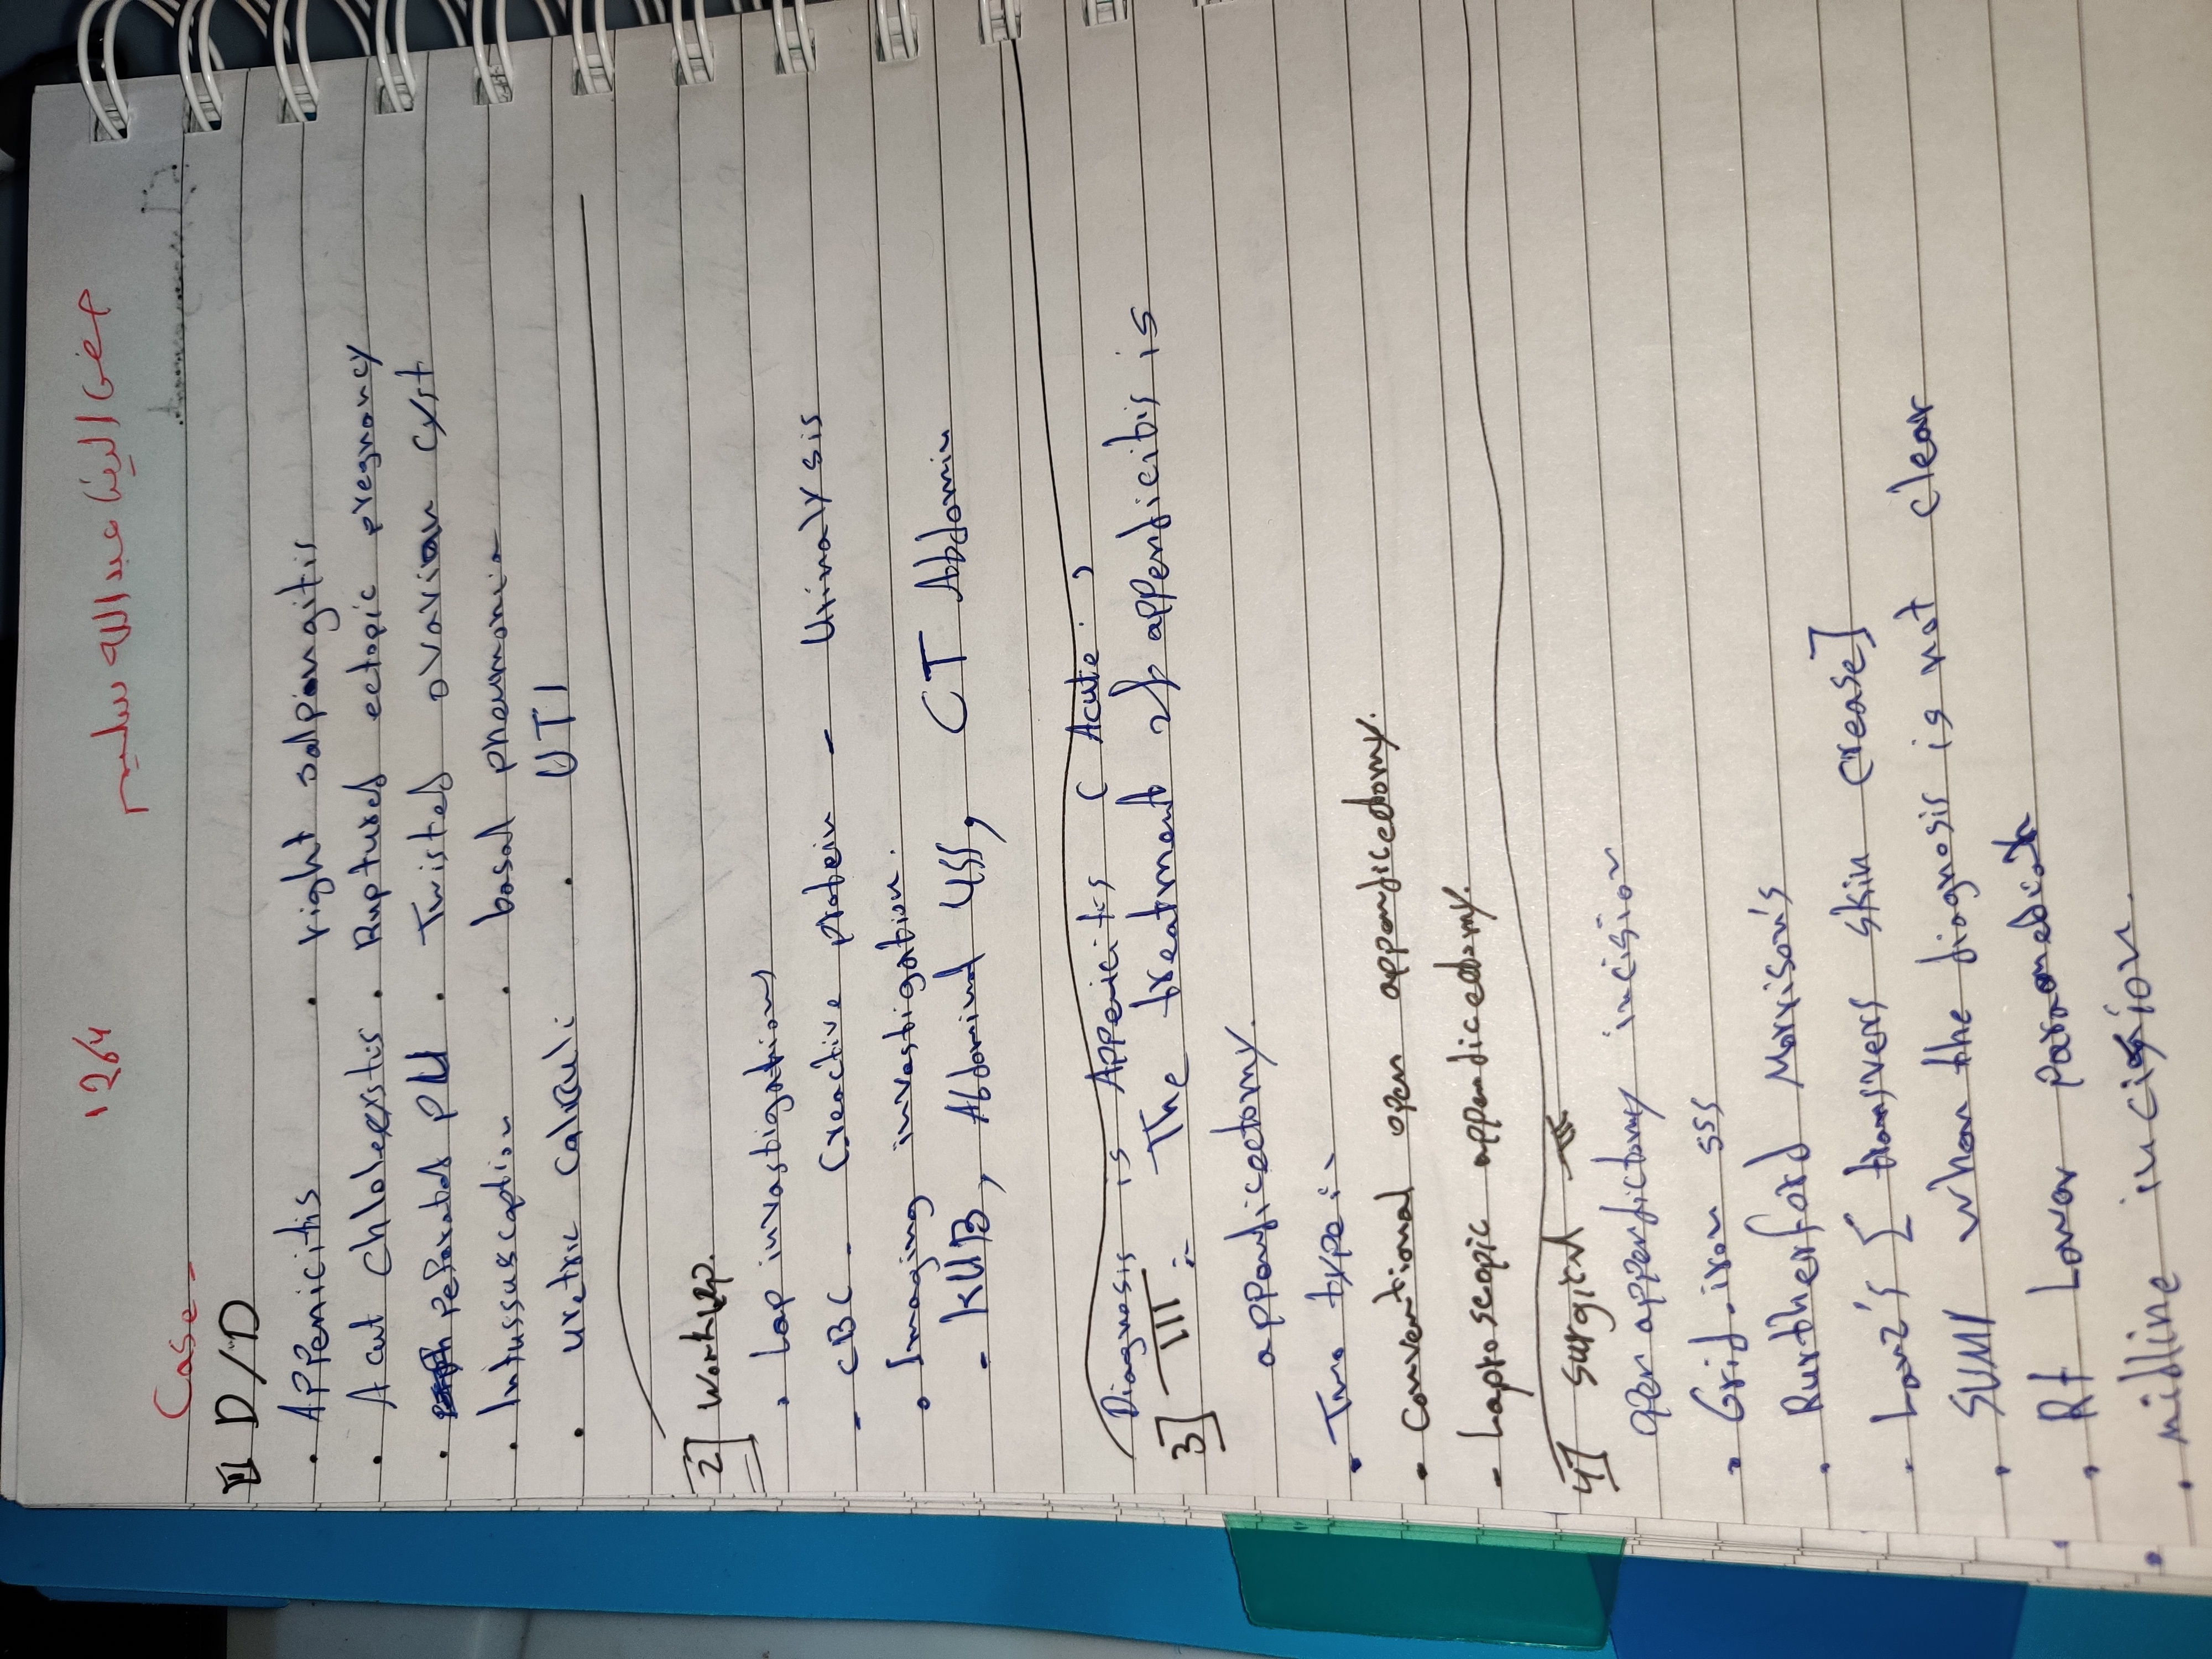 1264
منى الدين عبد الله سليم
Case-
1 D/D
• Appenicitis • right salpangitis
• A cut chloleystis • Ruptured ectopic pregnancy
• peforated PU • Twisted ovarian cyst
• Intussuscaption • basal pneumonia
• uretric calculi • UTI
2] Workup.
• Lap invastigations
- CBC - Creactive protein - Urinalysis
• Imaging invastigation.
- KUB, Abdominal USS, CT Abdomin
Diagnosis is Appeicits (Acute.)
3] III :- The treatment of appendicitis is
appandicectomy.
• Two type:-
• Conventional open appandicectomy.
- Laproscopic appandicectomy.
4] surgical
open appendictomy incision
• Grid-iron sss
• Rurtherford Morrison's
• Lanz's [transvers skin crease]
• SUMI when the diagnosis is not clear
• Rt Lower paramedian
• midline incision.